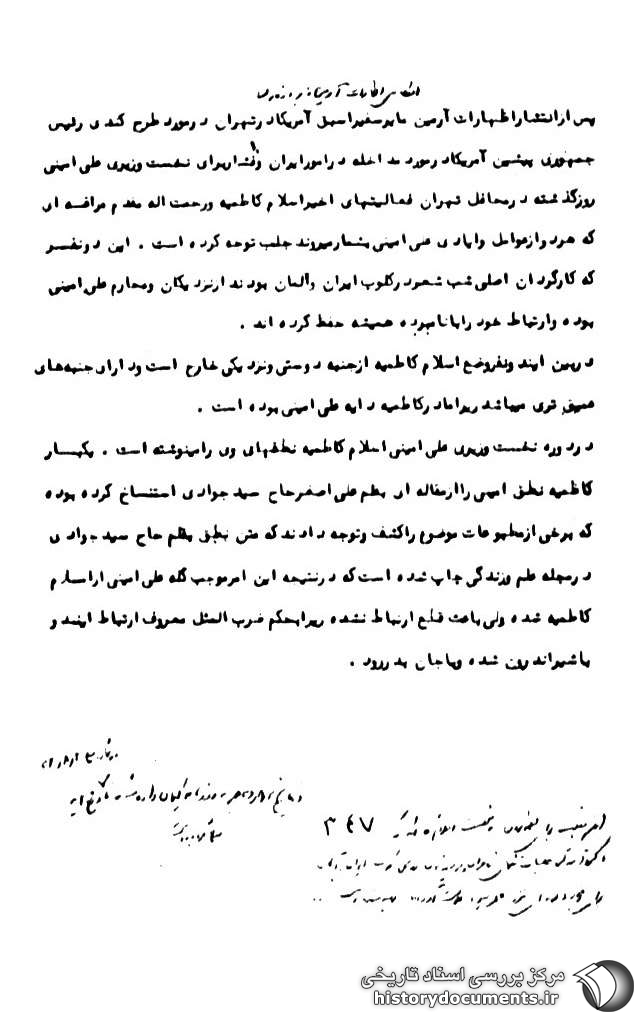 پس از انتشار اظهارات آرمین مایر سفیر اسبق آمریکا در تهران در مورد طرح کندی رئیس
جمهوری پیشین آمریکا در مورد مداخله در امور ایران و فشار برای نخست وزیری علی امینی
روز گذشته در محافل تهران فعالیتهای اخیر اسلام کاظمیه و رحمت اله مقدم مراغه ای
که هر دو از عوامل و ایادی علی امینی بشمار میروند جلب توجه کرده است . این دو نفر
که کارگردان اصلی شب شعر در کلوب ایران و آلمان بودند از نزدیکان و محارم علی امینی
بوده و ارتباط خود را با نامبرده همیشه حفظ کرده اند .
در بین ایندو نفر وضع اسلام کاظمیه از جنبه دوستی و نزدیکی خارج است و دارای جنبه‌های
عمیق تری میباشد زیرا مادر کاظمیه دایه علی امینی بوده است .
در دوره نخست وزیری علی امینی اسلام کاظمیه نطقهای وی را مینوشته است . یکبار
کاظمیه نطق امینی را از مقاله ای بقلم علی اصغر حاج سید جوادی استنساخ کرده بوده
که برخی از مطبوعات موضوع را کشف و توجه دادند که متن نطق بقلم حاج سید جوادی
در مجله علم و زندگی چاپ شده است که در نتیجه این امر موجب گله علی امینی از اسلام
کاظمیه شده ولی باعث قطع ارتباط نشده زیرا بحکم ضرب المثل معروف ارتباط ایندو
با شیر اندرون شده و با جان بدر رود .
۳۴۷
مرکز بررسی اسناد تاریخی
historydocuments.ir